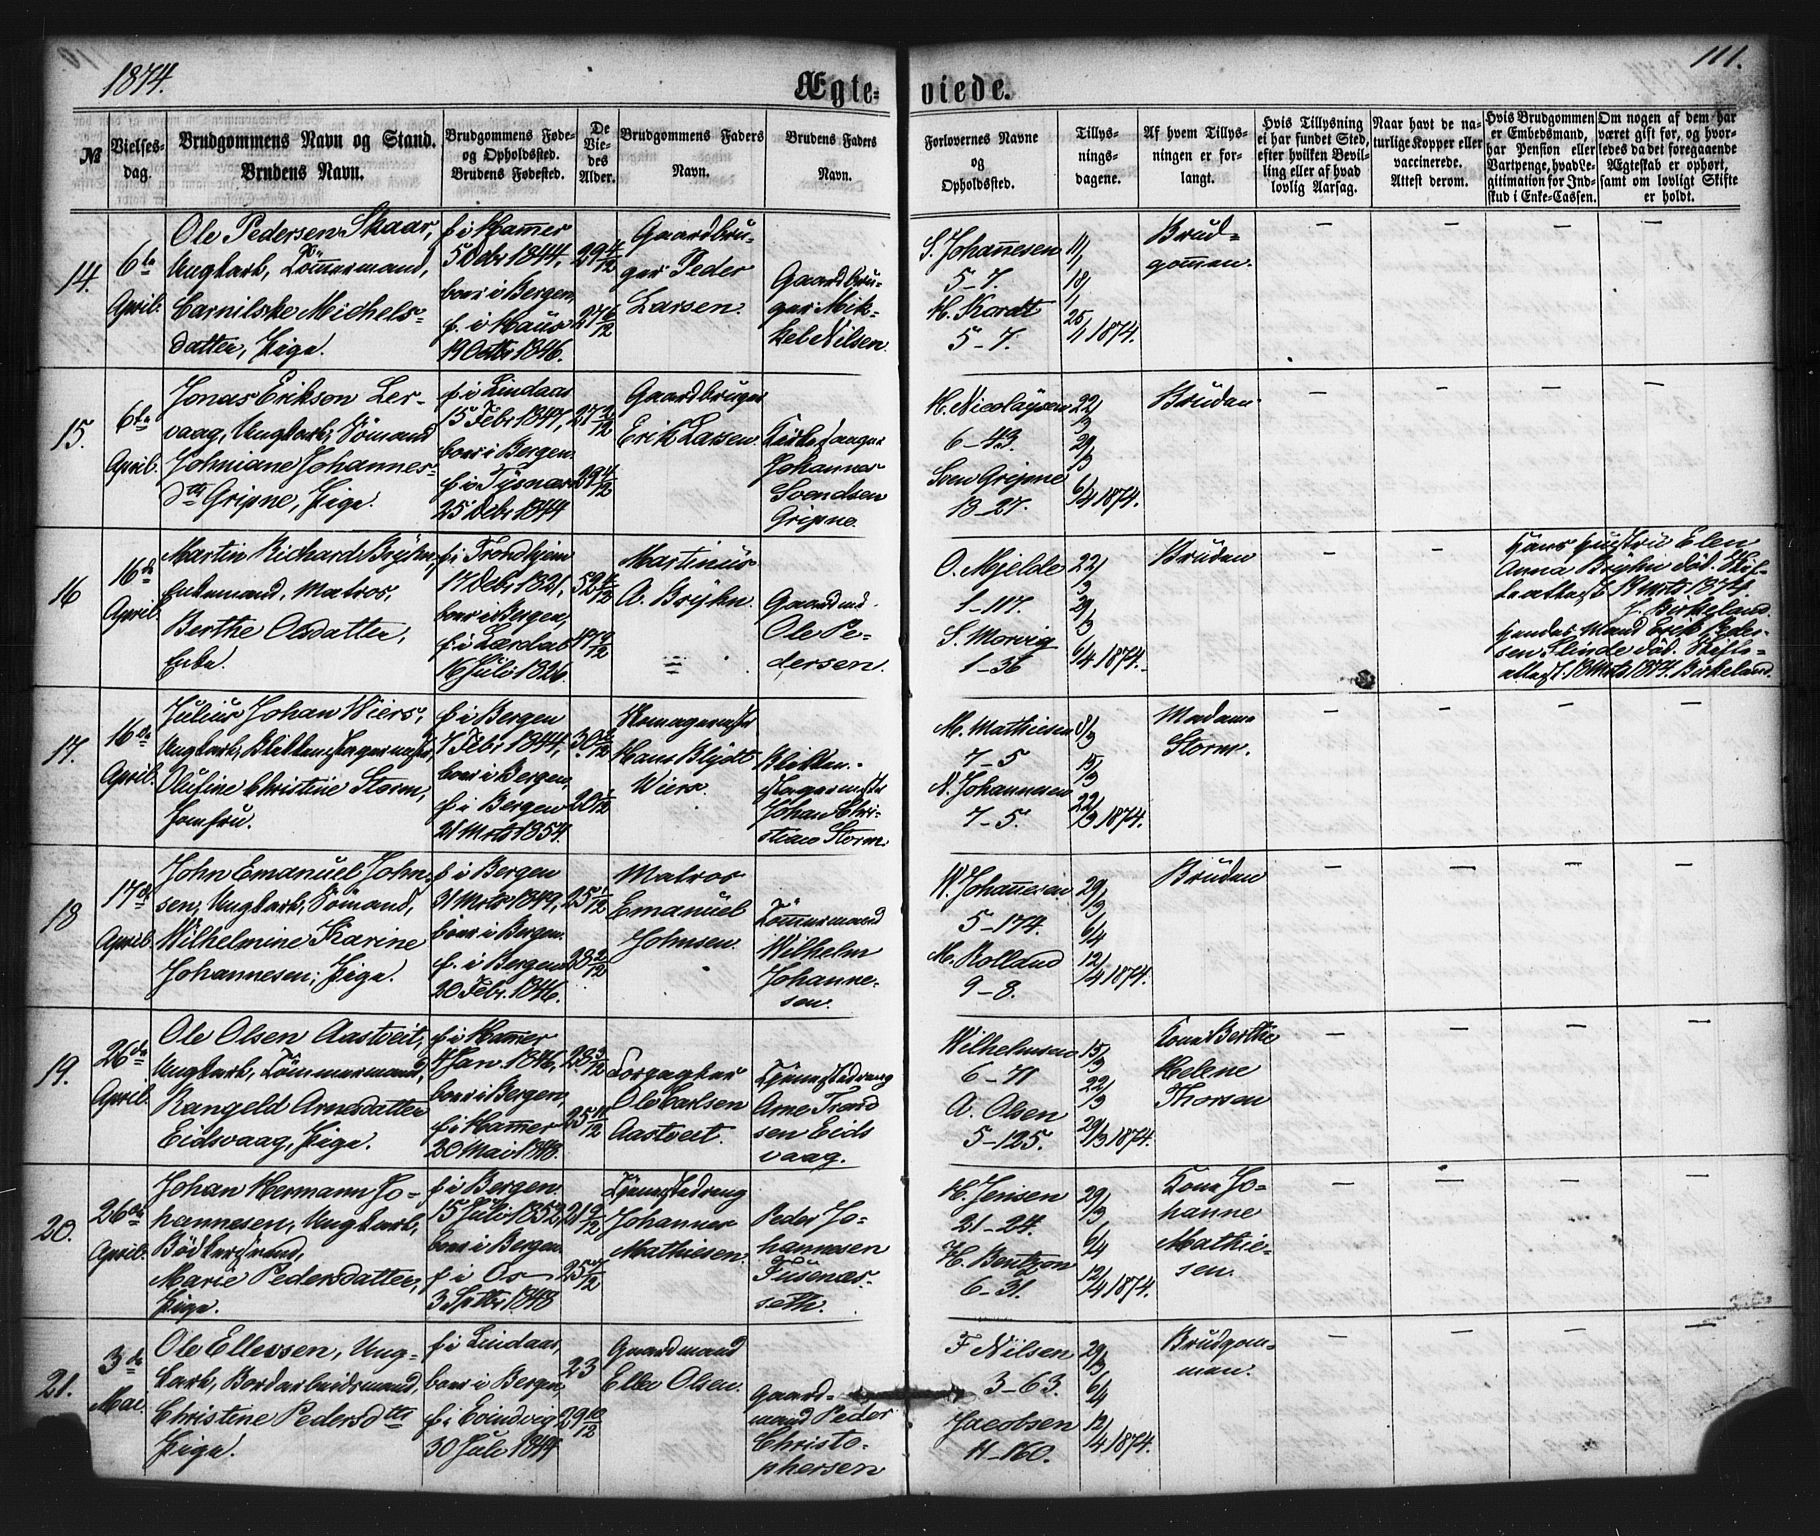 1874.
Ægteviede.
111.
№
Vielsesdag.
Brudgommens Navn og Stand.
Brudens Navn.
Brudgommens Fødeog Opholdssted.
Brudens Fødested.
De Viedes Alder.
Brudgommens Faders Navn.
Brudens Faders Navn.
Forlovernes Navne og Opholdssted.
Tillysningsdagene.
Af hvem Tillysningen er forlangt.
Hvis Tillysning ei har fundet Sted, efter hvilken Bevilling eller af hvad lovlig Aarsag.
Naar havt de naturlige Kopper eller vaccinerede. Attest derom.
Hvis Brudgommen er Embedsmand, har Pension eller Vartpenge, hvad Legitimation for Indskud i Enke-Cassen.
Om nogen af dem har været gift før, og hvorledes da det foregaaende Ægteskab er ophørt, samt om lovligt Skifte er holdt.
14.
6te April.
Ole Pedersen Skaar,
Ungkarl, Tömmermand,
Carnilske Michels-
datter, Pige.
f. i Hamer
5 Debr 1844,
boer i Bergen,
f. i Haus
19 Octbr 1846.
29 4/12
27 6/12
Gaardbru-
ger Peder
Larsen.
Gaardbru-
ger Mik-
kel Nilsen.
S. Johannesen
5-7.
H. Kordt
5-7.
11/1
18/1
25/1 1874.
Brud-
gommen.
15.
6te April.
Jonas Erikson Ler-
vaag, Ungkarl, Sömand
Johniane Johannes-
dtr Gripne, Pige.
f. i Lindaas
15 Febr 1847,
boer i Bergen.
f. i Tysnæs
25 Debr 1844
27 2/12
29 4/12
Gaardbruger
Erik Larsen.
Kirkesanger
Johannes
Svendsen
Gripne.
H. Nicolaysen
6-43.
Sven Gripne
13-27.
22/3
29/3
6/4 1874.
Bruden
16
16de April.
Martin Richard Bryhn,
Enkemand, Matros,
Berthe Olsdatter,
Enke.
f. i Trondhjem
17 Debr 1821,
boer i Bergen,
f. i Lærdal
16 Juli 1826.
52 4/12
47 9/12
Martinus
A. Bryhn.
Gaardmd.
Ole Pe-
dersen.
O. Mjelde
1-117.
S. Morvig
1-36
22/3
29/3
6/4 1874.
Bruden
Hans Hustru Elen
Anna Bryhn död. Skif-
teattest 19 Mrts 1874.
J. Birkeland.
Hendes Mand Erik Peder-
sen Slinde död. Skifte-
attest. 18 Mrts 1874. Birkeland.
17.
16de April.
Julius Johan Wiers,
Ungkarl, Blikkenslagermester,
Olufine Christine Storm,
Jomfru.
f. i Bergen
7 Febr 1844,
boer i Bergen,
f. i Bergen
21 Mrts 1854.
30 2/12
20 1/12
Hans Blydt
Wiers.
Blikken-
slagermester
Johan Chri-
stian Storm.
M. Mathiesen
7-5
N. Johannesen
7-5.
8/3
15/3
22/3 1874.
Madam
Storm.
18
17de April.
John Emanuel John-
sen, Ungkarl, Sömand,
Wilhelmine Karine
Johannesen, Pige.
f. i Bergen
21 Mrts 1849,
boer i Bergen.
f. i Bergen
20 Febr. 1846.
25 1/12
28 2/12
Matros
Emanuel
Johnsen.
Tömmermand
Wilhelm
Johanne-
sen.
W. Johannesen
5-174.
M. Rolland
9-8.
29/3
6/4
12/4 1874.
Bruden
19.
26de April.
Ole Olsen Aastveit,
Ungkarl, Tömmermand,
Rangeld Arnsdatter
Eidsvaag, Pige.
f. i Hamer
4 Jan. 1846,
boer i Bergen,
f. i Hamer
20 Mai 1848.
28 3/12
25 11/12
Forpagter
Ole Carlsen
Aastveit.
Tjenestedreng
Arne Trond
sen Eids
vaag.
Wilhelmsen
6-71
A. Olsen
5-125.
15/3
22/3
29/3 1874.
Kone Berthe
Helene
Thorsen
20.
26de April.
Johan Hermann Jo-
hannesen, Ungkarl,
Bödkersvend,
Marie Pedersdatter,
Pige.
f. i Bergen.
15 Juli 1852,
boer i Bergen.
f. i Os
3 Septbr 1848
21 9/12
25 7/12
Tjenestedreng
Johannes
Mathiesen.
Peder Jo-
hannesen
Tusenæs-
seth.
H. Jensen
21-24.
H. Bentzon
6-31.
29/3
6/4
12/4 1874.
Kone Jo-
hanne
Mathie-
sen.
21.
3de Mai.
Ole Ellessen, Ung-
karl, Bordarbeidsmand,
Christine Pedersdtr
Pige.
f. i Lindaas,
boer i Bergen,
f. i Evindvig
30 Juli 1844
23
29 10/12
Gaardmand
Elle Olsen.
Gaard-
mand Peder
Christo-
phersen
F Nilsen
3-63.
Jacobsen
11-160.
29/3
6/4
12/4 1874.
Brudgom-
men.